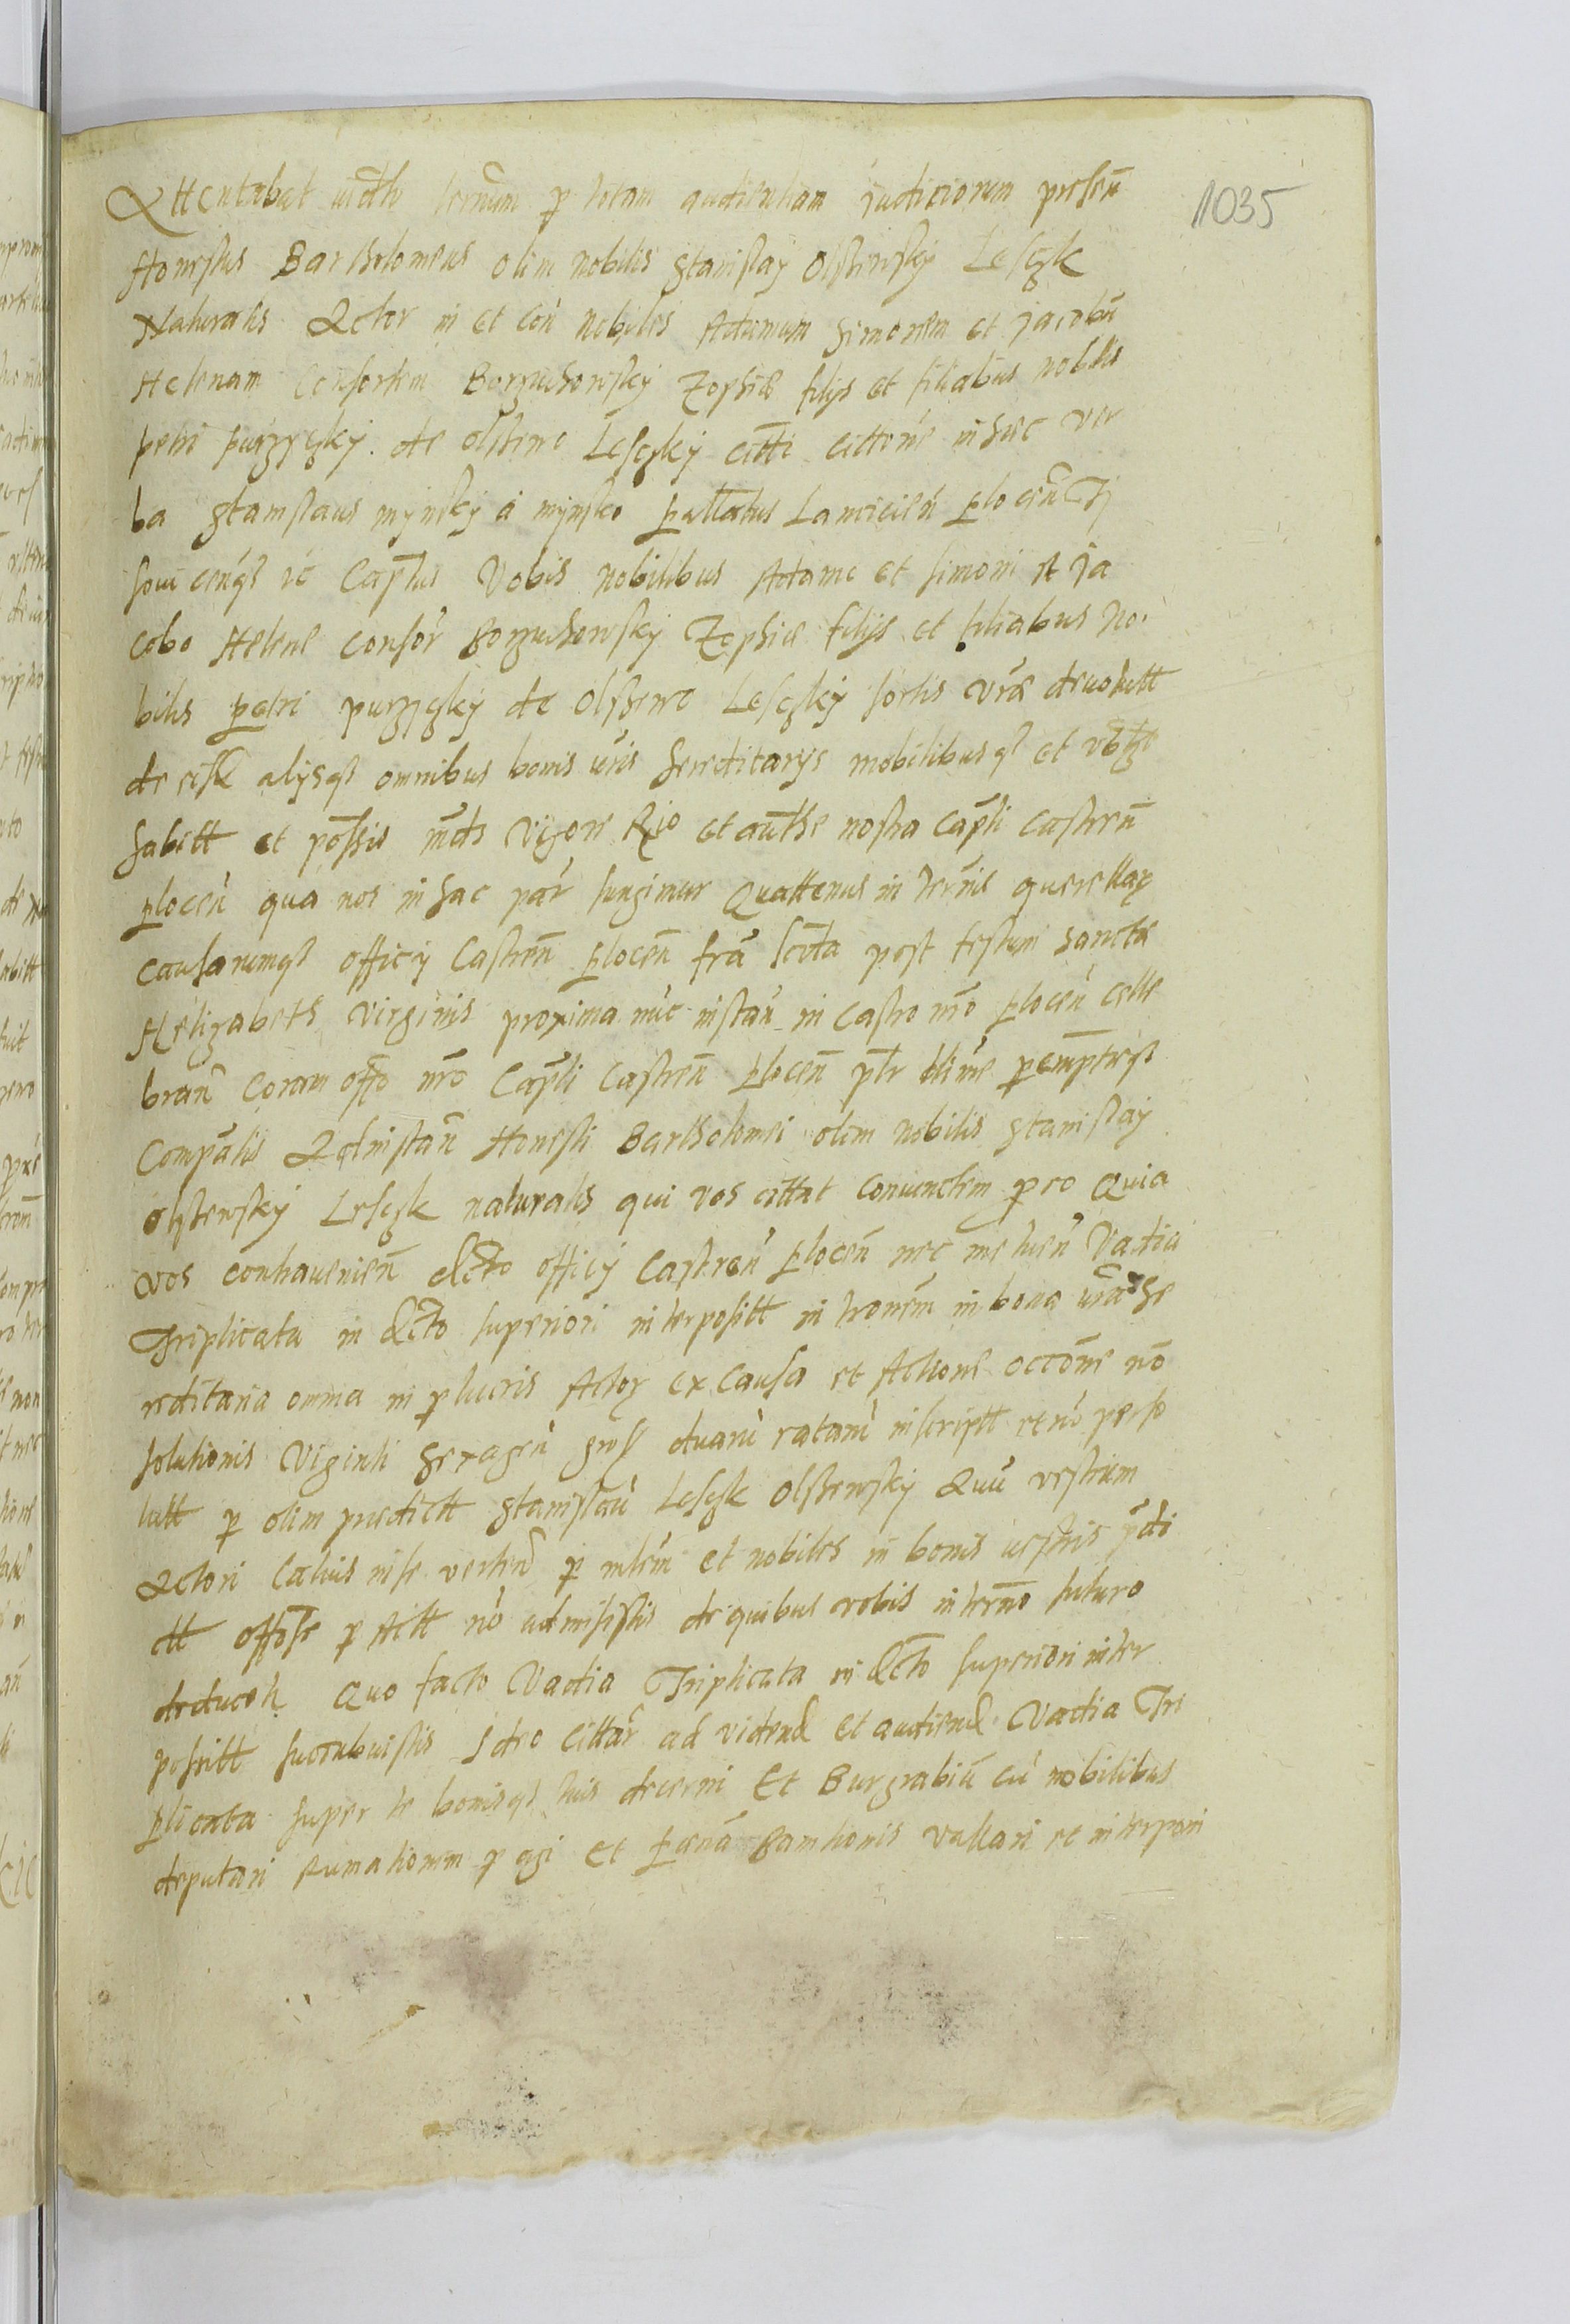 1035
Attentabat iudtr termm p totam audientiam judiciorum presen
Honestus Bartholomeus olim nobilis Stanislaj Olssewskÿ Lesczk
Naturalis Actor in et con nobiles Adamum Simonem et jacobu
Helenam Consortem Borzuchowskÿ Zophia filijs et filiabus nobilis
petri purzyczkÿ de olssewo Lesczkÿ citti cittone in hec ver
ba Stanislaus mÿnskÿ a mÿnsko pallatus Lancicien Plocen
sowiensqs ic Captus Vobis nobilibus Adamo et Simoni et Ja
cobo Helene consor Borzuchowskÿ Zophia filijs et filiabus No
bilis petri purzyczkÿ de Olssewo Lesczkÿ sortis vra devolutt
de eisd alijsqs omnibus bonis vris hereditarijs mobilibusqs et vbqz
habitt et possis mds vigore Rjo et authe nostra Capli castren
plocen qua nos in hac par fungimur Quattenus in termis querellarum
causarumqs officij Castren plocen fra scda post festum sancta
Helizabeth virginis proxima nuc instan in castro nro plocen celle
bran coram offo nro Capli castren plocen plr ttime pemptqs
Compatis Ad instan Honesti Bartholomei olim nobilis Stanislaj
olsstewskÿ Lesczk naturalis qui vos cittat coniunctem pro eo Quia
vos contravenien dcto officij castren plocen nec metuen Vadia
Triplicata in dcto superiori interpositt intromm in bona vra he
reditaria omnia in p lucris Actor ex causa et Actione occone no
solutionis Viginti sexagen gros duaru rataru inscriptt et no perso
lutt p olim predictt Stanislau Lesczk Olssewskÿ Auu vestrum
Actori latius in se verten p mlem et nobiles in bonis vestris pdi
ctt offose p Actt no admisistis de quibus vobis in termo futuro
deducetr Quo facto Vadia Triplicata in dcto superiori inter
posittt succubuistis Ideo cittar ad videnda et audiend Vadia Tri
plicata super te bonisqs tuis decerni Et Burgrabiu cu nobilibus
deputari Rumationem p agi et pena Bannitionis vallari et interponi